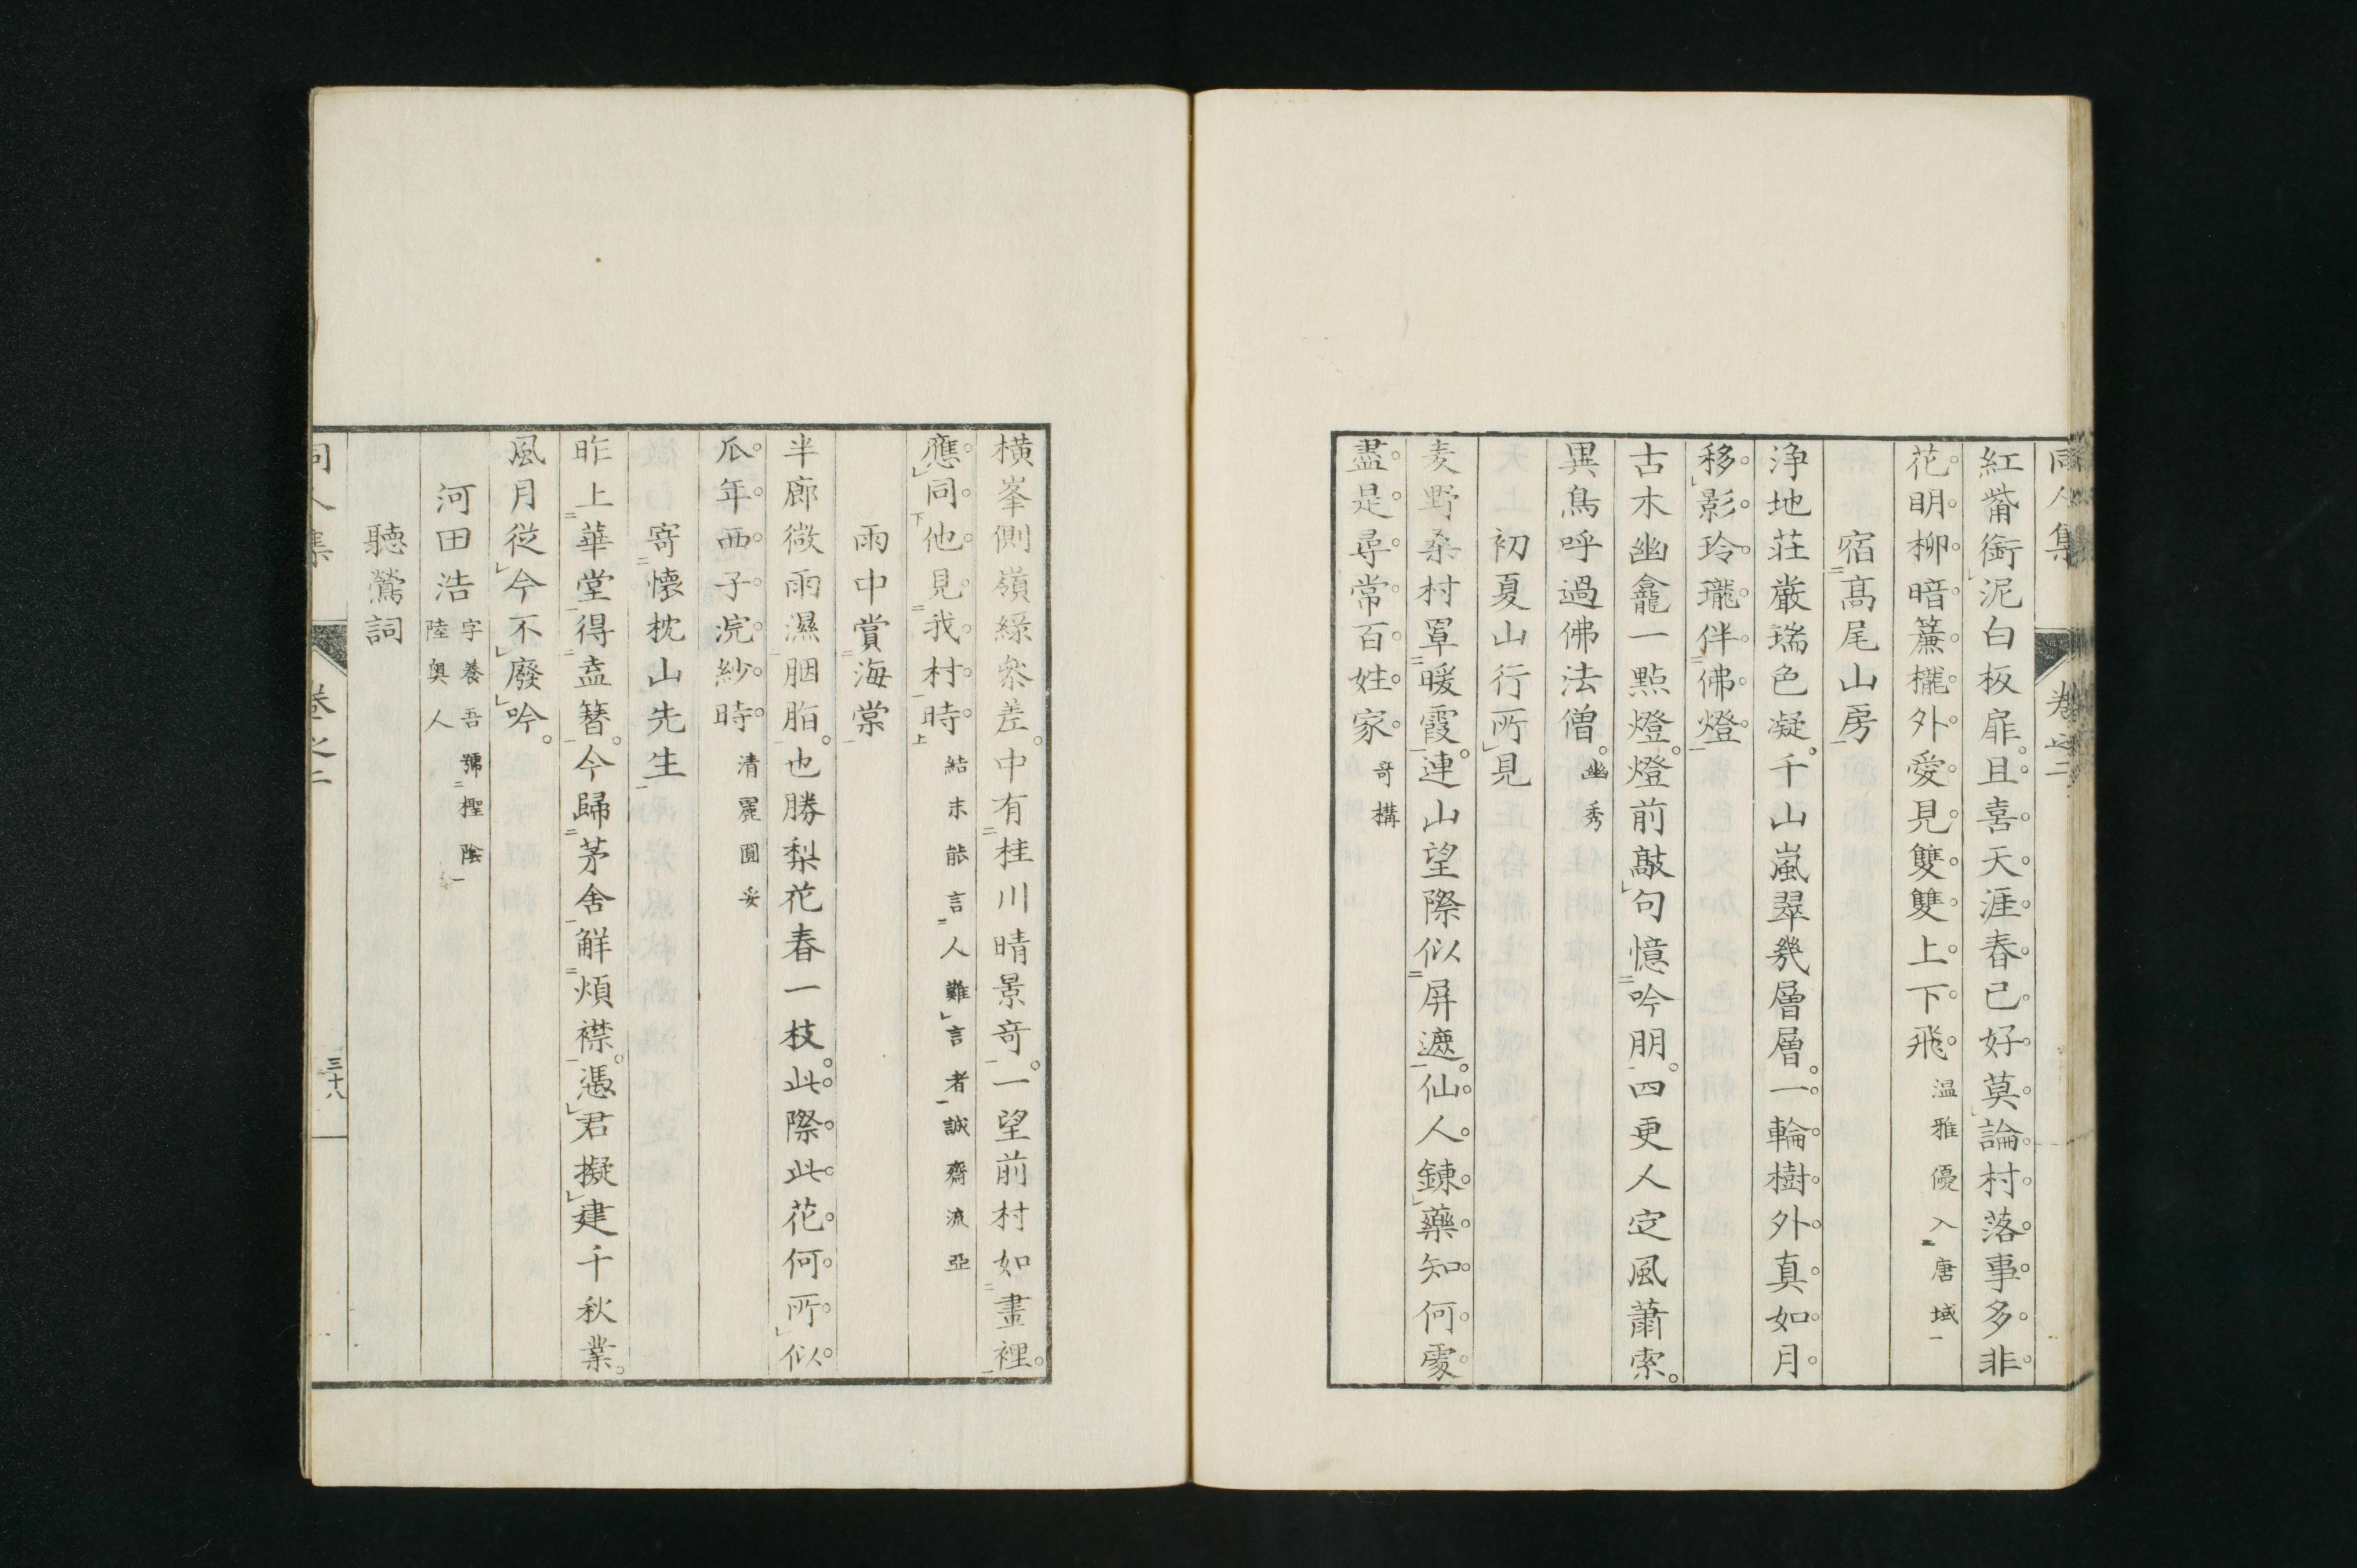 同人集 卷之二
紅觜銜泥白板扉。且喜天涯春已好。莫論村落事多非
花明柳暗簾櫳外。愛見雙雙上下飛 温雅優入唐域
宿髙尾山房
浄地荘嚴瑞色凝。千山嵐翠幾層層。一輪樹外真如月
移影玲瓏伴佛燈
古木幽龕一點燈。燈前敲句憶吟朋。四更人定風蕭索。
異鳥呼過佛法僧。幽秀
初夏山行所見
麦野桑村罩暖霞。連山望際似屏遮。仙人錬藥知何處
盡是尋常百姓家 奇構
橫峯側嶺緑參差。中有桂川晴景竒。一望前村如畫裡。
應同他見我村時 結末能言人難言者誠齋流亞
雨中賞海棠
半廊微雨濕胭脂。也勝梨花春一枝。此際此花何所似
瓜年西子浣紗時 清麗圓妥
寄懐枕山先生
昨上華堂得盍簪。今歸茅舍解煩襟。憑君擬建千秋業。
風月從今不廢吟。
河田浩 字養吾號檉陰
陸奥人
聽鶯詞
同人集 卷之二 三十八